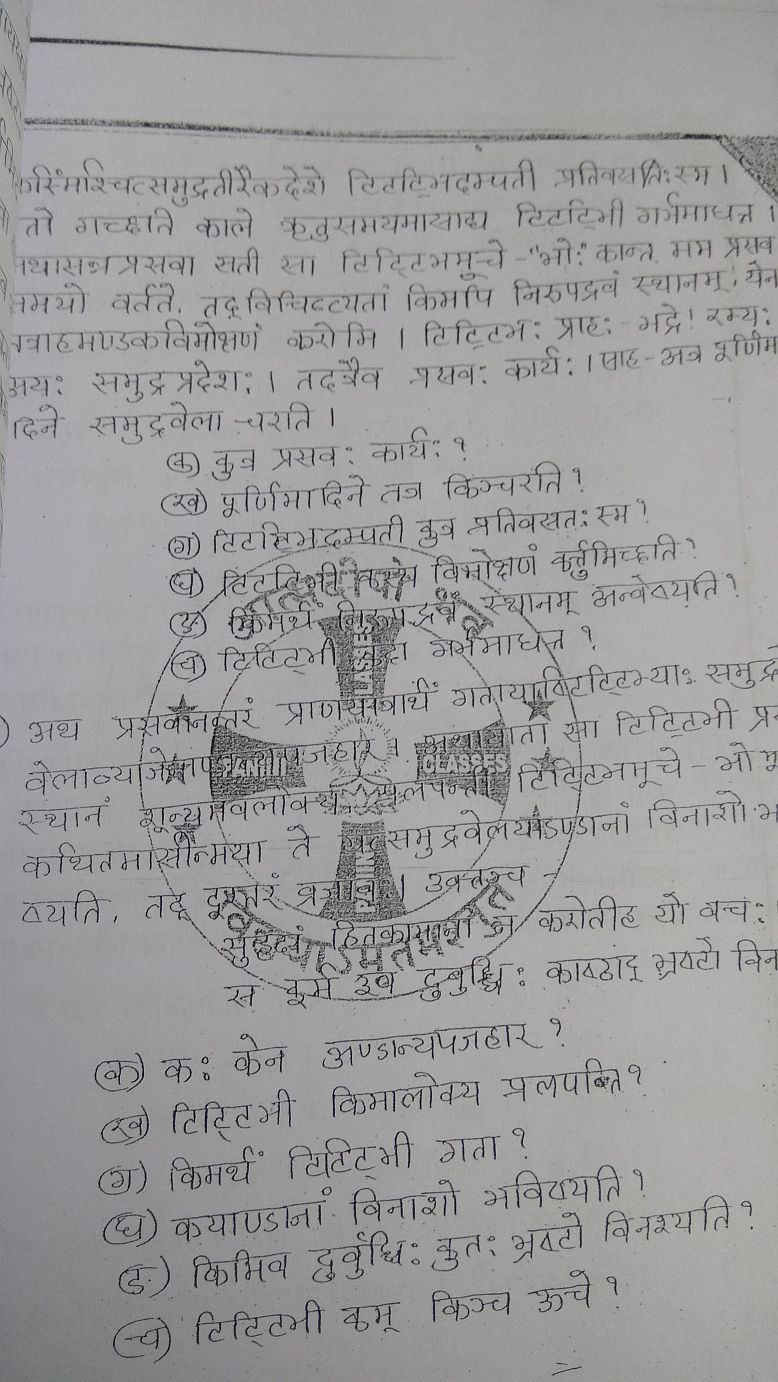 कस्मिंश्चित्समुद्रतीरैकदेशे टिटटिभदम्पती प्रतिवसतिःस्म ।
तो गच्छति काले ऋतुसमयमासाद्य टिटटिभी गर्भमाधत्त ।
तथासन्नप्रसवा सती सा टिट्टिभमूचे -"भोः कान्त मम प्रसव
समयो वर्तते, तद्विचिन्त्यतां किमपि निरुपद्रवं स्थानम्, येन
तत्राहमण्डकविमोक्षणं करोमि । टिट्टिभः प्राहः- भद्रे! रम्यः
अयः समुद्रप्रदेशः । तदत्रैव प्रसवः कार्यः । साह - अत्र पूर्णिमा
दिने समुद्रवेला चरति ।
(क) कुत्र प्रसवः कार्यः ?
(ख) पूर्णिमादिने तत्र किञ्चरति ?
(ग) टिटटिभदम्पती कुत्र प्रतिवसतः स्म ?
(घ) टिटटिभी कस्य विमोक्षणं कर्त्तुमिच्छति ?
(ङ) किमर्थं निरुपद्रवं स्थानम् अन्वेष्यति ?
(च) टिटिट्भी कदा गर्भमाधत्त ?
अथ प्रसवानन्तरं प्राणयात्रार्थं गतायाष्टिट्टिभ्याः समुद्रो
वेलाव्याजेनाण्डान्यपजहार । अथायाता सा टिट्टिभी प्रसव
स्थानं शून्यमवलोक्य प्रलपन्ती टिट्टिभमूचे - भो मू
कथितमासीन्मया ते यत्समुद्रवेलयाडण्डानां विनाशो भ
ष्यति, तद् दूरतरं व्रजावः । उक्तञ्च -
सुहृदां हितकामानां न करोतीह यो वचः ।
स कूर्म इव दुर्बुद्धिः काष्ठाद् भ्रष्टो विन
(क) कः केन अण्डान्यपजहार ?
(ख) टिट्टिभी किमालोक्य प्रलपन्ति ?
(ग) किमर्थं टिटिट्भी गता ?
(घ) कयाण्डानां विनाशो भविष्यति ?
(ङ) किमिव दुर्वुध्दिः कुतः भ्रष्टो विनश्यति ?
(च) टिट्टिभी कम् किञ्च ऊचे ?
CLASSES